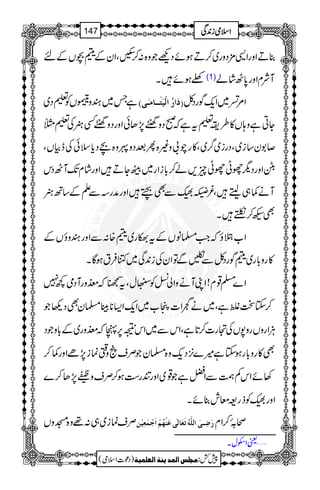 اسلامی زندگی 147
بنانے اور ایسی مزدوری کرتے ہوئے دیکھے جو وہ نہ کرسکیں، ان کے یتیم بچوں کے لئے
آشرم اور پاٹھ شالے (1) کھلے ہوئے ہیں۔
امرتسر میں ایک گورو کل (دَارُ الْیَتَامیٰ) ہے جس میں ہندو یتیموں کو تعلیم دی
جاتی ہے وہاں کا طریقہ تعلیم یہ ہے کہ صبح دو گھنٹے پڑھائی اور دو گھنٹے کسی ہنر کی تعلیم مثلاً
صابون سازی، درزی گری، کارچوبی وغیرہ پھر بعد دوپہر وہ بچے دیا سلائی کی ڈبیاں،
بٹن اور دیگر چھوٹی چھوٹی چیزیں لے کر بازار میں بیٹھ جاتے ہیں اور شام تک آٹھ دس
آنے کما لیتے ہیں، غرضیکہ کچھ بھی سے بچتے ہیں اور مدرسہ سے علم کے ساتھ ہنر
بھی سیکھ کر نکلتے ہیں۔
اب بتاؤ کہ جب مسلمانوں کے یہ بھکاری یتیم خانہ سے اور ہندوؤں کے
کاروباری یتیم گورو کل سے نکلیں گے تو ان کی زندگی میں کتنا فرق ہوگا۔
اے مسلم قوم! اپنی آنے والی نسل کو سنبھال، یہ نہ سمجھنا کہ معذور آدمی کچھ نہیں
کرسکتا سخت غلط ہے، میں نے گجرات پنجاب میں ایک ایسا نابینا مسلمان بھی دیکھا جو
ہزاروں روپیوں کی تجارت کرتا ہے، اس سے میں اس نتیجہ پر پہنچا کہ معذوری کے باوجود
بھی کاروبار ہوسکتا ہے میرے نزدیک وہ مسلمان جو صرف پنج وقتی نماز پڑھے اور کما کر
کھائے اس کم ہمت سے افضل ہے جو قوی اور تندرست ہو کر صرف وظیفے پڑھا کرے
اور کو ذریعہ معاش بنائے۔
صحابۂ کرام رَضِیَ اللّٰہُ تَعَالٰی عَنْہُمْ اَجْمَعِیْن صرف نمازی ہی نہ تھے وہ مسجدوں
1..... یعنی اسکول۔
پیش کش: مجلس المدینۃ العلمیۃ (دعوت اسلامی)